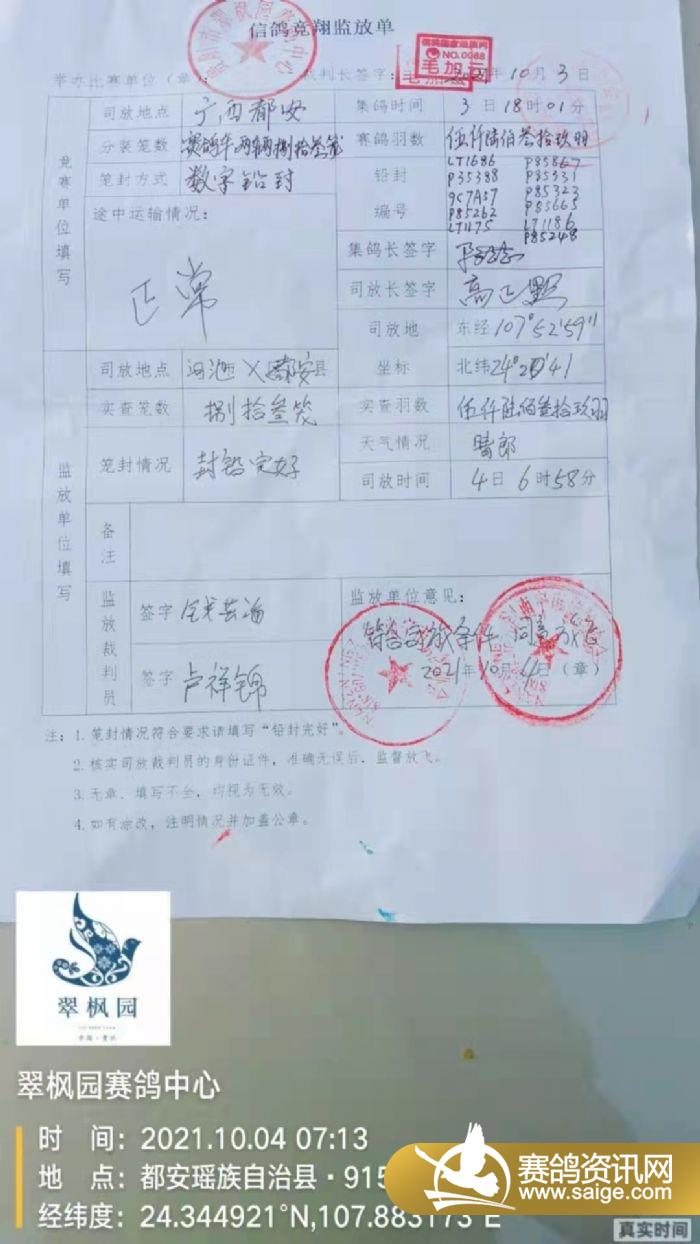 信鸽竞翔监放单
信鸽国家级裁判
NO.0088
毛加云
举办比赛单位（章）： 裁判长签字： 2021年10月3日
竞赛单位填写
司放地点 广西都安 集鸽时间 3日18时01分
分装笼数 赛鸽车两辆捌拾叁笼 赛鸽羽数 伍仟陆佰叁拾玖羽
笼封方式 数字铅封 铅封编号
LT1686 P85867
P35388 P85331
957A57 P85323
P85262 P85665
LT1175 LT1186
P85248
途中运输情况：
正常
集鸽长签字
司放长签字
司放地坐标 东经107°52′59″
北纬24°20′41
监放单位填写
司放地点 河池 都安县
实查笼数 捌拾叁笼 实查羽数 伍仟陆佰叁拾玖羽
笼封情况 封铅完好 天气情况 晴郎
司放时间 4日6时58分
备注
监放裁判员
签字
签字 卢祥锦
监放单位意见：
符合司放条件 同意放飞
2021年10月4日（章）
注：1.笼封情况符合要求请填写“铅封完好”。
2.核实司放裁判员的身份证件，准确无误后，监督放飞。
3.无章、填写不全，均视为无效。
4.如有涂改，注明情况并加盖公章。
翠枫园
翠枫园赛鸽中心
时 间：2021.10.04 07:13
地 点：都安瑶族自治县·915
经纬度：24.344921°N,107.883173°E
赛鸽资讯网
www.saige.com
真实时间